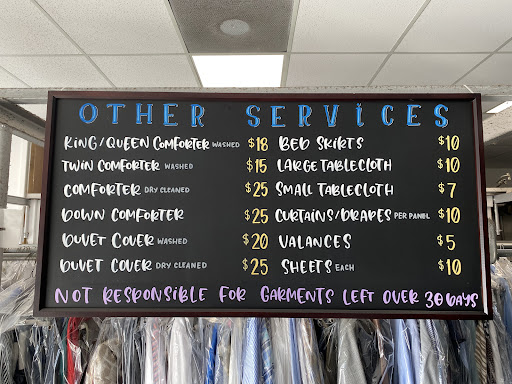 OTHER SERVICES
KING/QUEEN COMFORTER WASHED $18 BED SKIRTS $10
TWIN COMFORTER WASHED $15 LARGE TABLECLOTH $10
COMFORTER DRY CLEANED $25 SMALL TABLECLOTH $7
DOWN COMFORTER $25 CURTAINS/DRAPES PER PANEL $10
DUVET COVER WASHED $20 VALANCES $5
DUVET COVER DRY CLEANED $25 SHEETS EACH $10
NOT RESPONSIBLE FOR GARMENTS LEFT OVER 30 DAYS